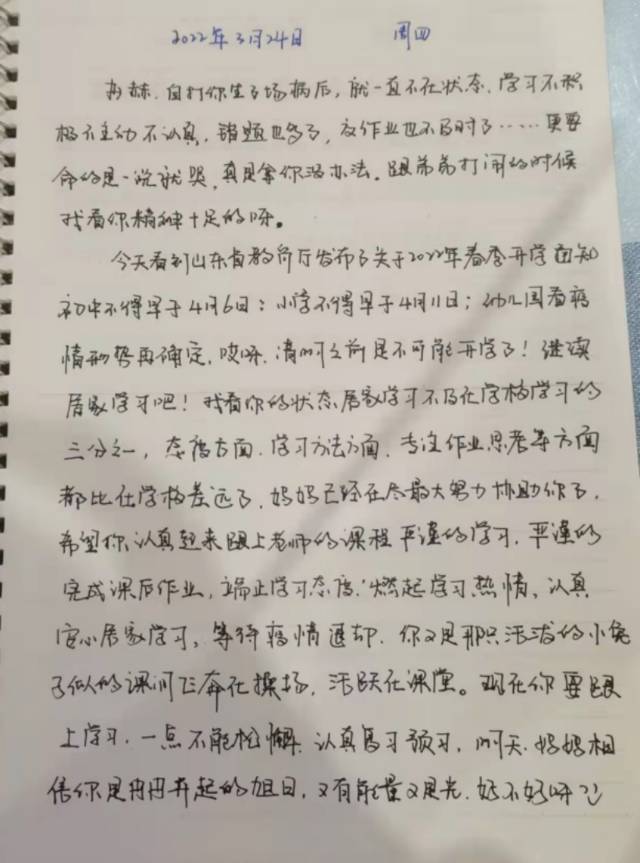 2022年3月24日 周四
冉赫,自打你生了场病后,就一直不在状态,学习不积
极不主动不认真,错题也多了,交作业也不及时了……更要
命的是一说就哭,真是拿你没办法,跟弟弟打闹的时候
我看你精神十足的呀。
今天看到山东省教育厅发布了关于2022年春季开学通知
初中不得早于4月6日;小学不得早于4月11日;幼儿园看疫
情形势再确定,哎呀,清明之前是不可能开学了!继续
居家学习吧!我看你的状态居家学习不及在学校学习的
三分之一,态度方面,学习方法方面,专注作业思考等方面
都比在学校差远了,妈妈已经在尽最大努力协助你了,
希望你认真起来跟上老师的课程严谨的学习,严谨的
完成课后作业,端正学习态度,燃起学习热情,认真
安心居家学习,等待疫情退却,你又是那只活泼的小兔
子似的课间飞奔在操场,活跃在课堂。现在你要跟
上学习,一点不能松懈,认真复习预习,明天,妈妈相
信你是冉冉升起的旭日,又有能量又是光,好不好呀